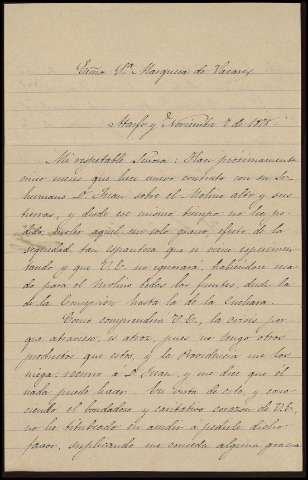 Exma Sra Marquesa de
Atarfe y Noviembre 8 de
Mi respetable Señora: Hace próximamente
meses que hice nuevo contrato con su Sr
hermano D. Juan sobre el Molino alto y sus
tierras, y desde ese mismo tiempo no he po-
dido moler aquel un solo grano, efecto de la
sequedad tan espantosa que se viene esperimen-
tando y que V.E. no ignorará, habiéndose
para el molino todas las fuentes, desde la
de la Concepción hasta la de la
Como comprenderá V.E., la crisis por-
que atravieso es atroz, pues no tengo otros
productos que estos, y la Providencia me los
niega: recurro a D. Juan, y me dice que él
nada puede hacer. En vista de esto, y cono-
ciendo el bondadoso y caritativo corazon de V.E.,
no he titubeado en acudir a pedirle dicho
favor, suplicando me conceda alguna gracia